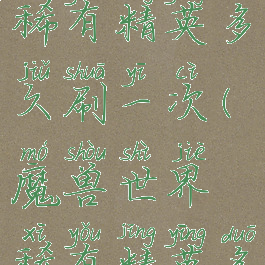 稀有精英多
jiǔ shuā yī cì
久刷一次(
mó shòu shì jiè
魔兽世界
xī yǒu jīng yīng duō
稀有精英多